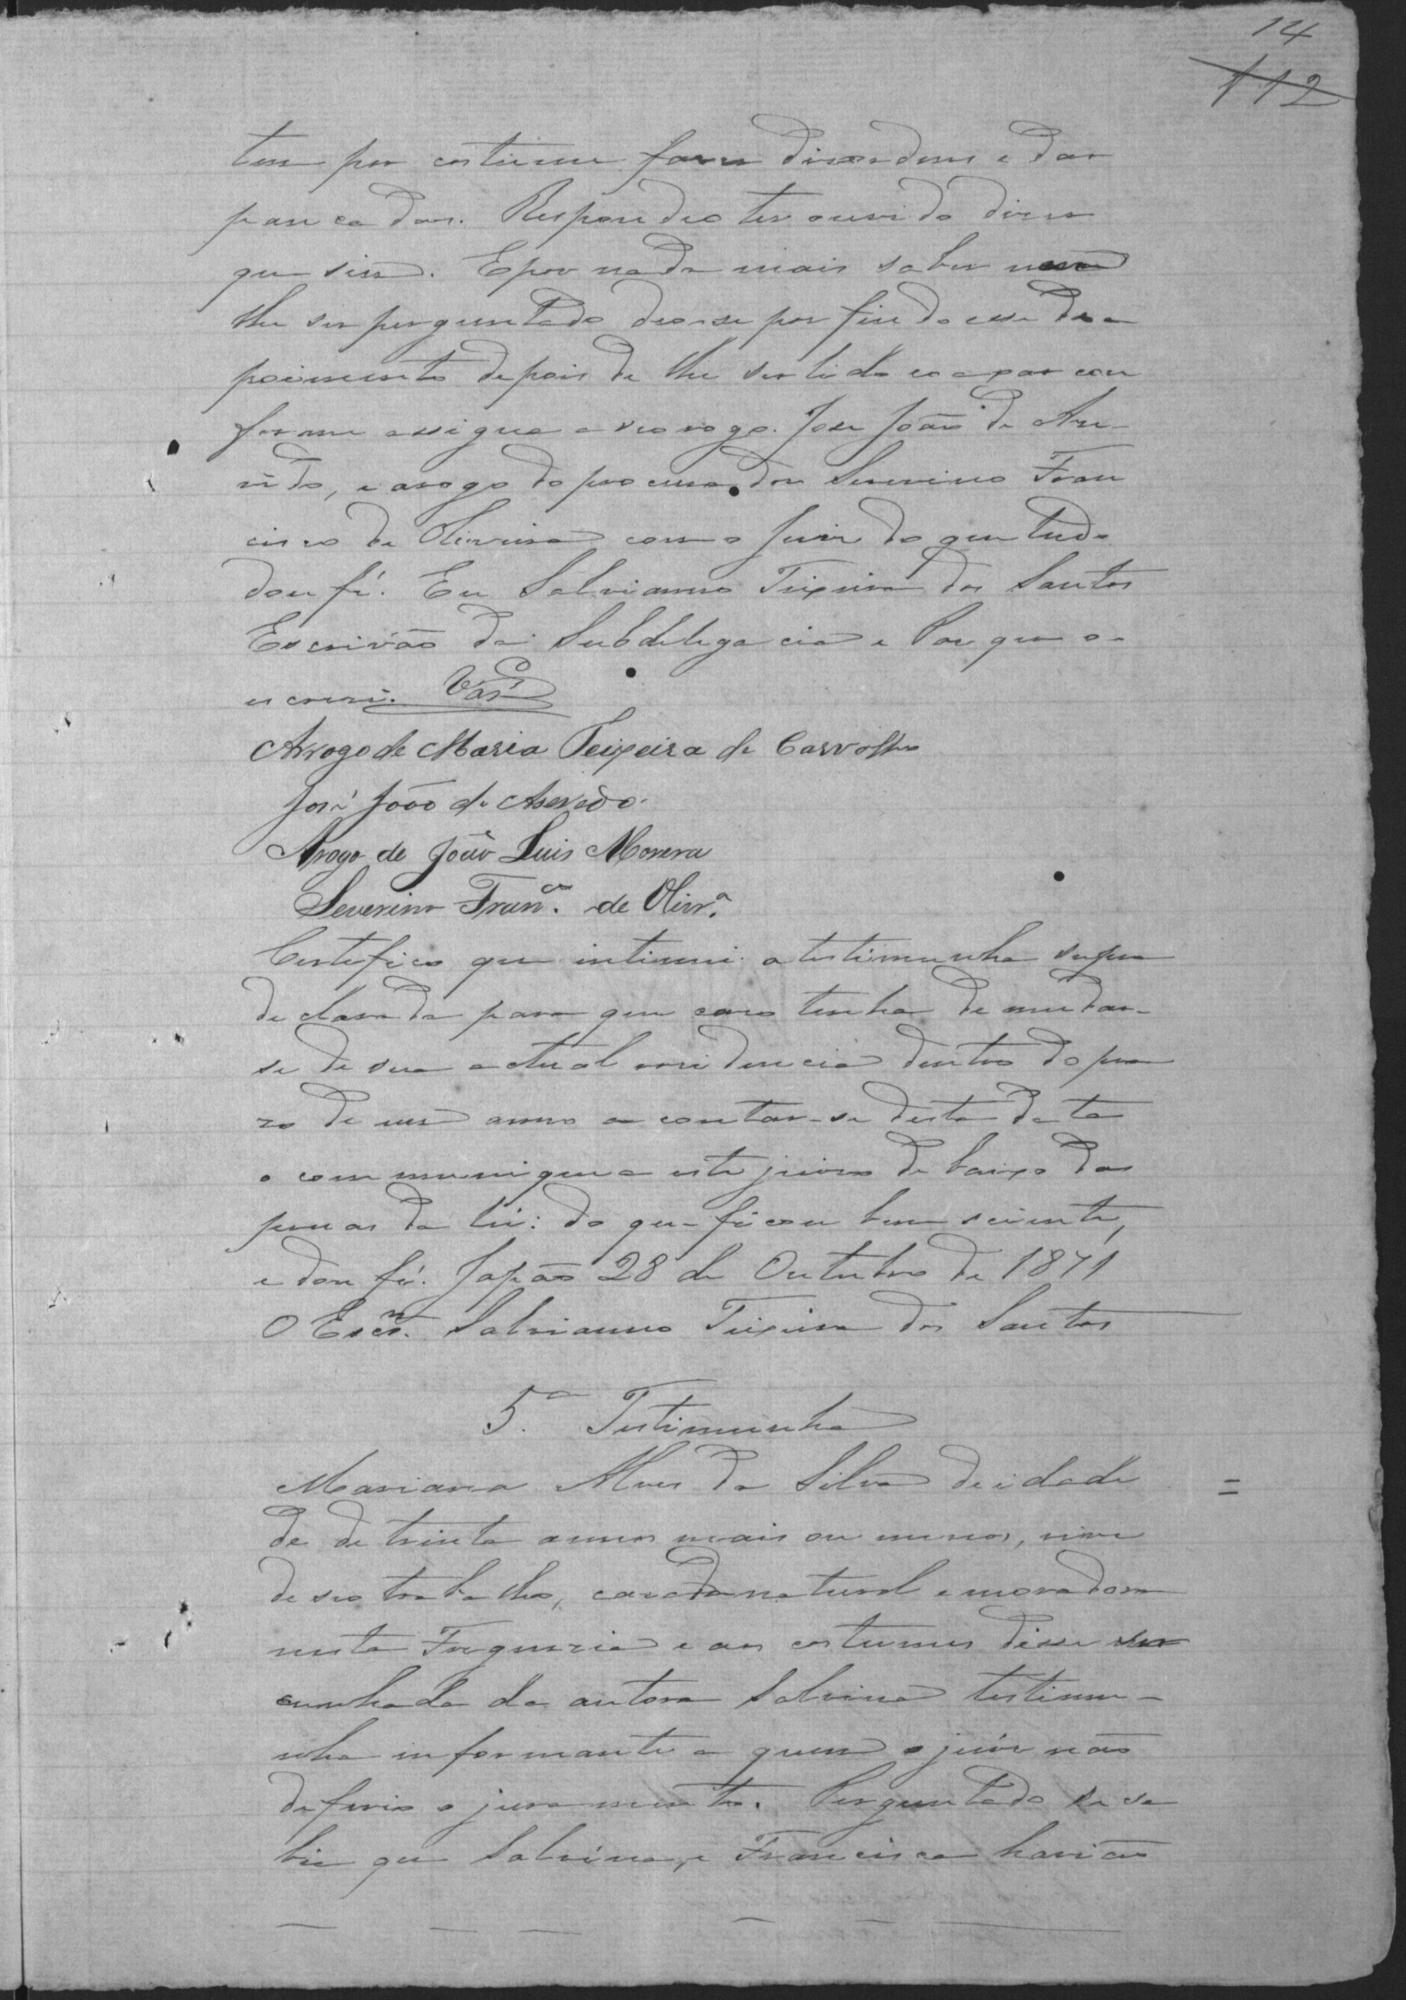 14
112
tem por costume fazer dizordens e dar
pancadas. Respondeo ter ouvido dizer
que sim. E por nada mais saber nem
lhe ser perguntado deo-se por findo esse de-
poimento depois de lhe ser lido e o axar con
forme assigna a seo rogo José João de Aze-
vêdo, e arogo do procurador Severino Fran
cisco de Oliveira com o Juiz do que tudo
dou fé. Eu Salvianno Teixeira dos Santos
Escrivão da Subdelegacia e Par que o
escrevi.
Arrogo de Maria Teixeira de Carvalho
José João de Asevedo.
Arogo de João Luis Morera
Severino Franco. de Olivra.
Certifico que intimei a testimunha supra
declarada para que caso tenha de mudar-
se de sua actual residencia dentro do pra
zo de um anno a contar-se desta data
o communique a este juizo debaixo das
penas da lei: do que ficou bem sciente,
e dou fé. Japão 28 de Outubro de 1871
O Escm. Salvianno Teixeira dos Santos
5a. Testimunha
Mariana Alves da Silva de idade
de de trinta annos mais ou menos, vive
de seo trabalho, casada natural e moradora
nesta Freguezia e aos costumes disse ser
cunhada da autora Salvina testimu-
nha informante a quem o juiz não
deferio o juramento. Perguntado se sa
bia que Salvina, e Francisca havião